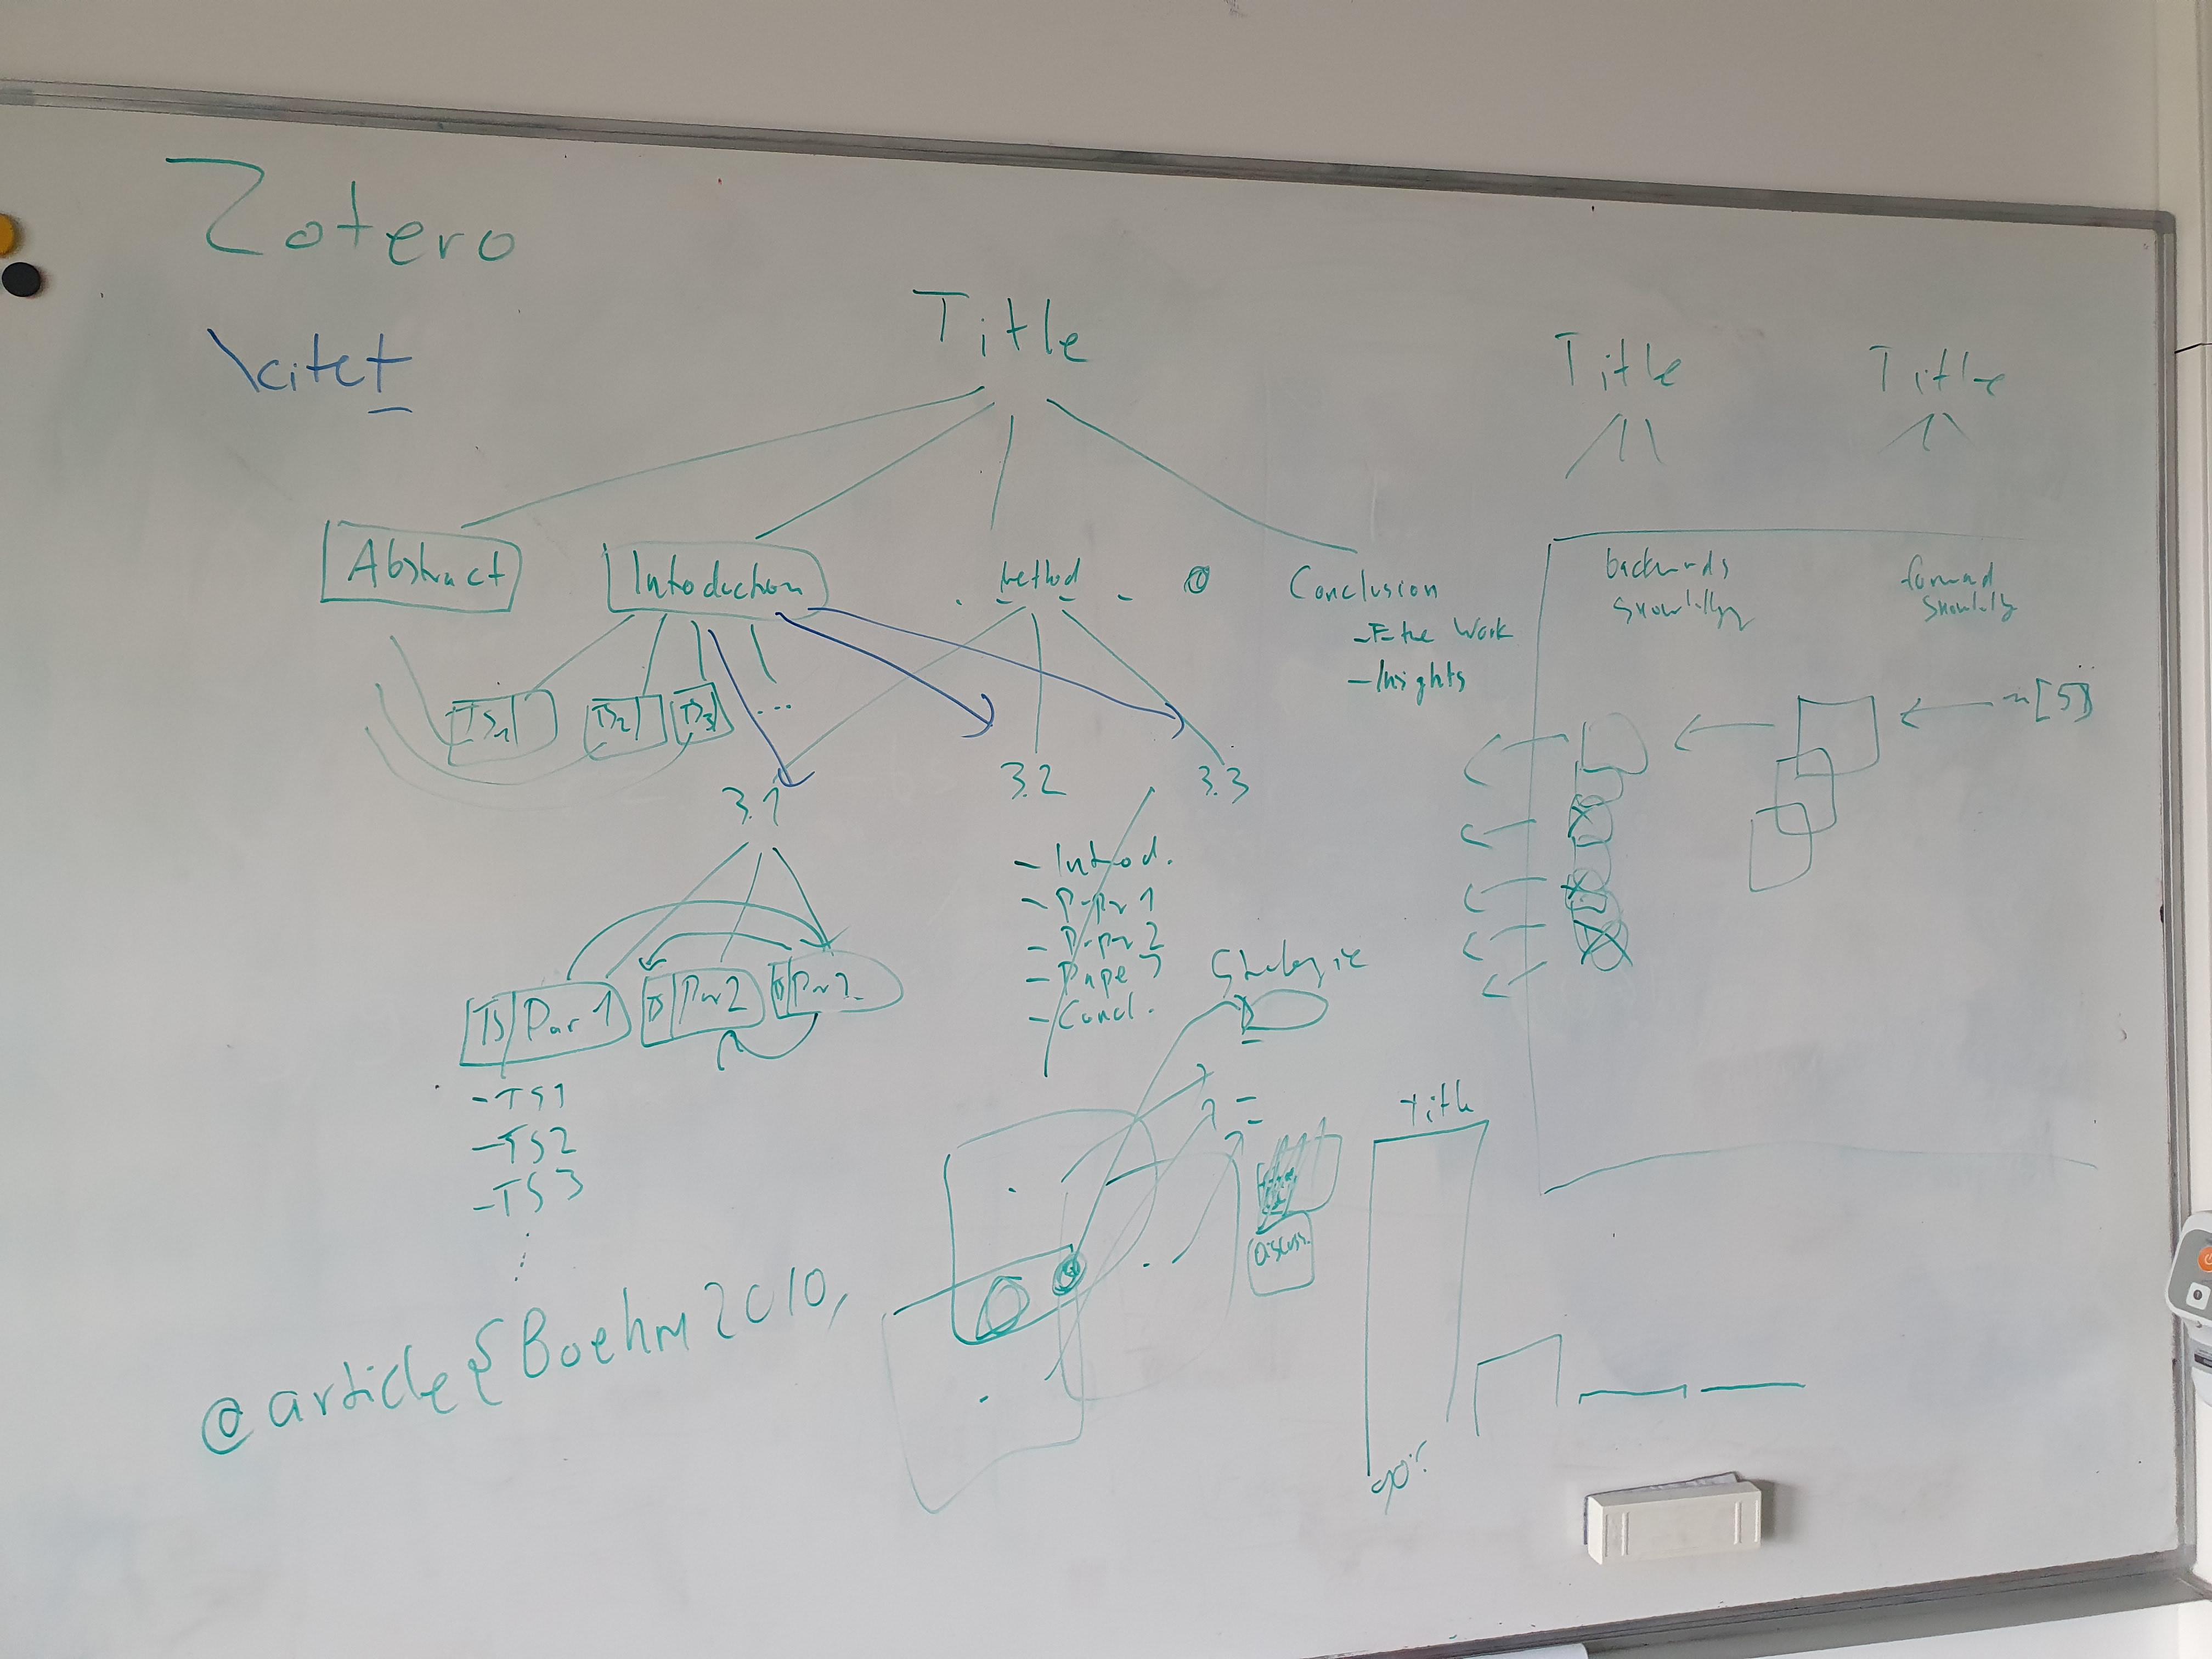 Zotero
\citet
Title
Title
Title
Abstract
Intoduction
Method
Conclusion
- Insights
Work
backwards
forward
TS1
TS2
TS3
...
[5]
3.1
3.2
3.3
- Introd.
- Paper 1
- Paper 2
- Pape 3
- Concl.
TS Par 1
TS Par 2
- TS1
- TS2
- TS3
Title
Discuss.
@article{Boehm2010,
90%